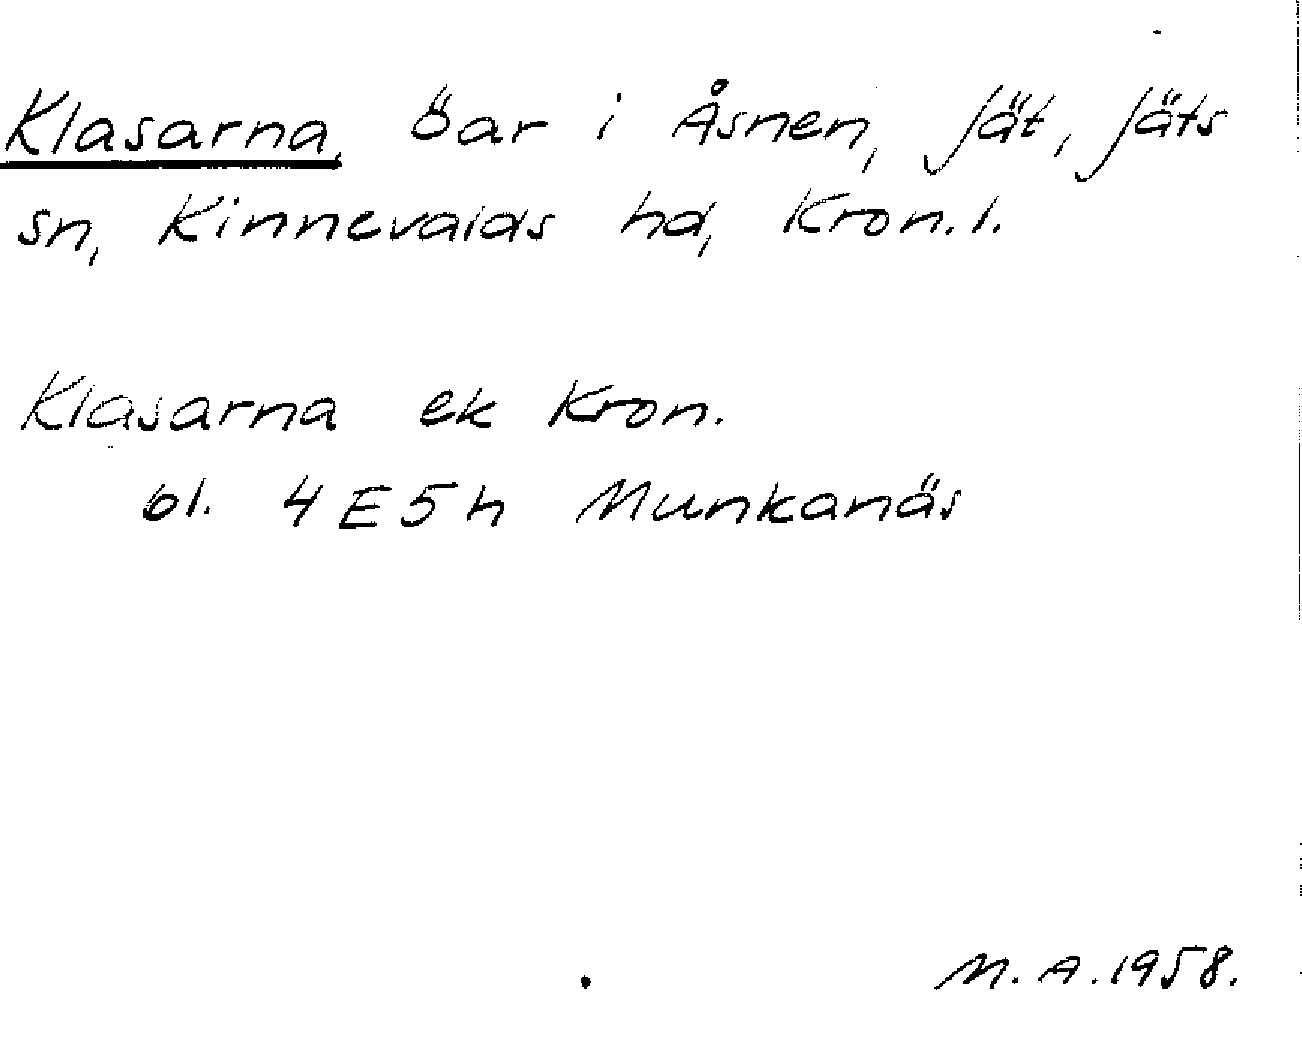 Klasarna, öar i Åsnen, Jät, Jäts
sn, Kinnevalds hd, Kron. l.
Klasarna ek Kron.
bl. 4E5h Munkanäs
M. A. 1958.